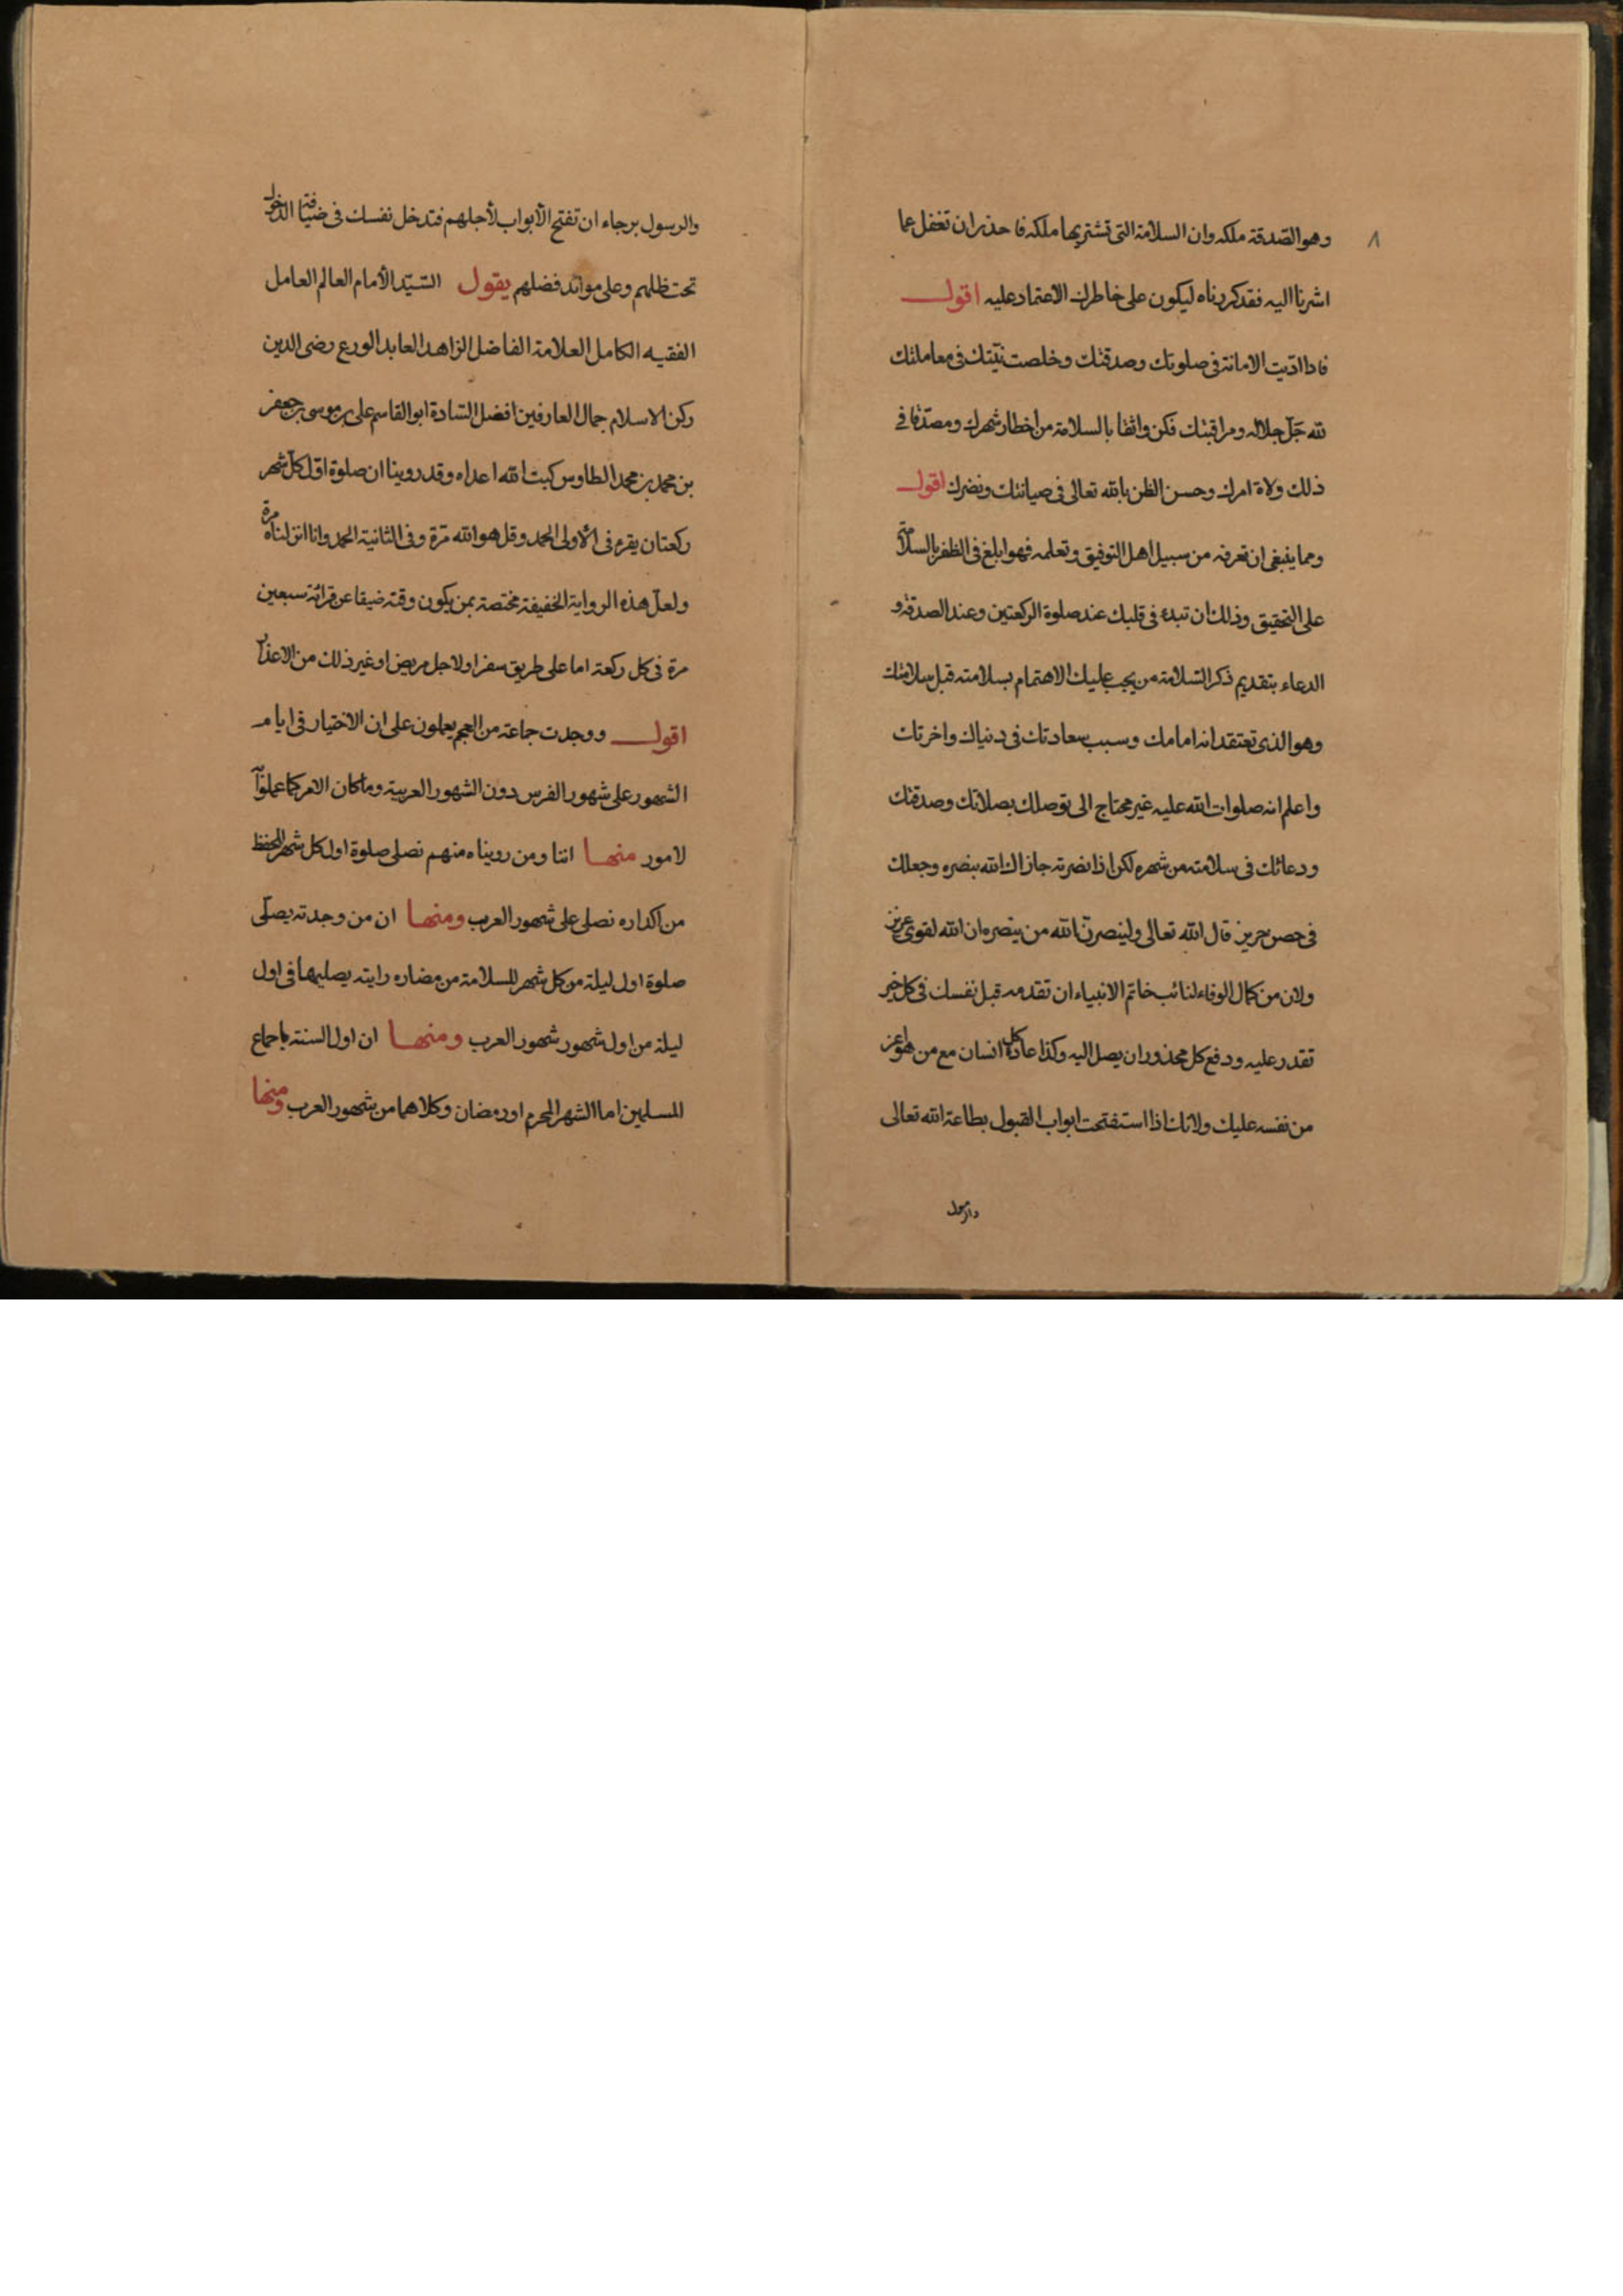 ٨
وهو الصّدقة ملكه وان السلامة التى تشتريها ملكه فاحذر ان تغفل عما
اشرنا اليه فقد كررناه ليكون على خاطرك الاعتماد عليه اقول
فاذا ادّيت الامانة فى صلوتك وصدقتك وخلصت نيّتك فى معاملتك
لله جَلّ جلاله ومراقبتك فكن واثقا بالسلامة من أخطار شهرك ومصدّقا في
ذلك ولاة امرك وحسن الظن بالله تعالى فى صيانتك ونصرك اقول
ومما ينبغى ان تعرفه من سبيل اهل التوفيق وتعلمه فهو ابلغ فى الظفر بالسلامة
على التحقيق وذلك ان تبدء فى قلبك عند صلوة الركعتين وعند الصدقة و
الدعاء بتقديم ذكر السّلامة من يجب عليك الاهتمام بسلامته قبل سلامتك
وهو الذى تعتقد انه امامك وسبب سعادتك فى دنياك واخرتك
واعلم انه صلوات الله عليه غير محتاج الى توصلك بصلاتك وصدقتك
ودعائك فى سلامته من شهره لكن اذا نصرته جازاك الله بنصره وجعلك
فى حصن حريز قال الله تعالى ولينصرنّ الله من ينصره ان الله لقوى عزيز
ولان من كمال الوفاء لنائب خاتم الانبياء ان تقدمه قبل نفسك فى كل خير
تقدر عليه ودفع كل محذور ان يصل اليه وكذا عادة كل انسان مع من هو اعز
من نفسه عليك ولانك اذا استفتحت ابواب القبول بطاعة الله تعالى
والرسول
والرسول برجاء ان تفتح الأبواب لأجلهم فتدخل نفسك فى ضيافة الدخول
تحت ظلهم وعلى موائد فضلهم يقول السّيّد الأمام العالم العامل
الفقيه الكامل العلامة الفاضل الزاهد العابد الورع رضى الدين
ركن الاسلام جمال العارفين افضل السّادة ابو القاسم على بن موسى بن جعفر
بن محمد بن محمد الطاوس كبت الله اعداه وقد روينا ان صلوة اوّل كلّ شهر
ركعتان يقرء فى الأولى الحمد وقل هو الله مرّة وفى الثانية الحمد وانا انزلناه مرة
ولعلّ هذه الرواية الخفيفة مختصة بمن يكون وقته ضيقا عن قرائة سبعين
مرة فى كل ركعة اما على طريق سفر او لاجل مريض او غير ذلك من الاعذار
اقول ووجدت جماعة من العجم يعملون على ان الاختيار فى ايام
الشهور على شهور الفرس دون الشهور العربية وما كان الامر كما عملوا
لامور منها اننا ومن رويناه منهم نصلى صلوة اول كل شهر للحفظ
من اكداره نصلى على شهور العرب ومنها ان من وجدته يصلّى
صلوة اول ليلة من كل شهر للسلامة من مضاره رايته يصليها فى اول
ليلة من اول شهور شهور العرب ومنها ان اول السنة باجماع
المسلمين اما الشهر المحرم او رمضان وكلاهما من شهور العرب ومنها